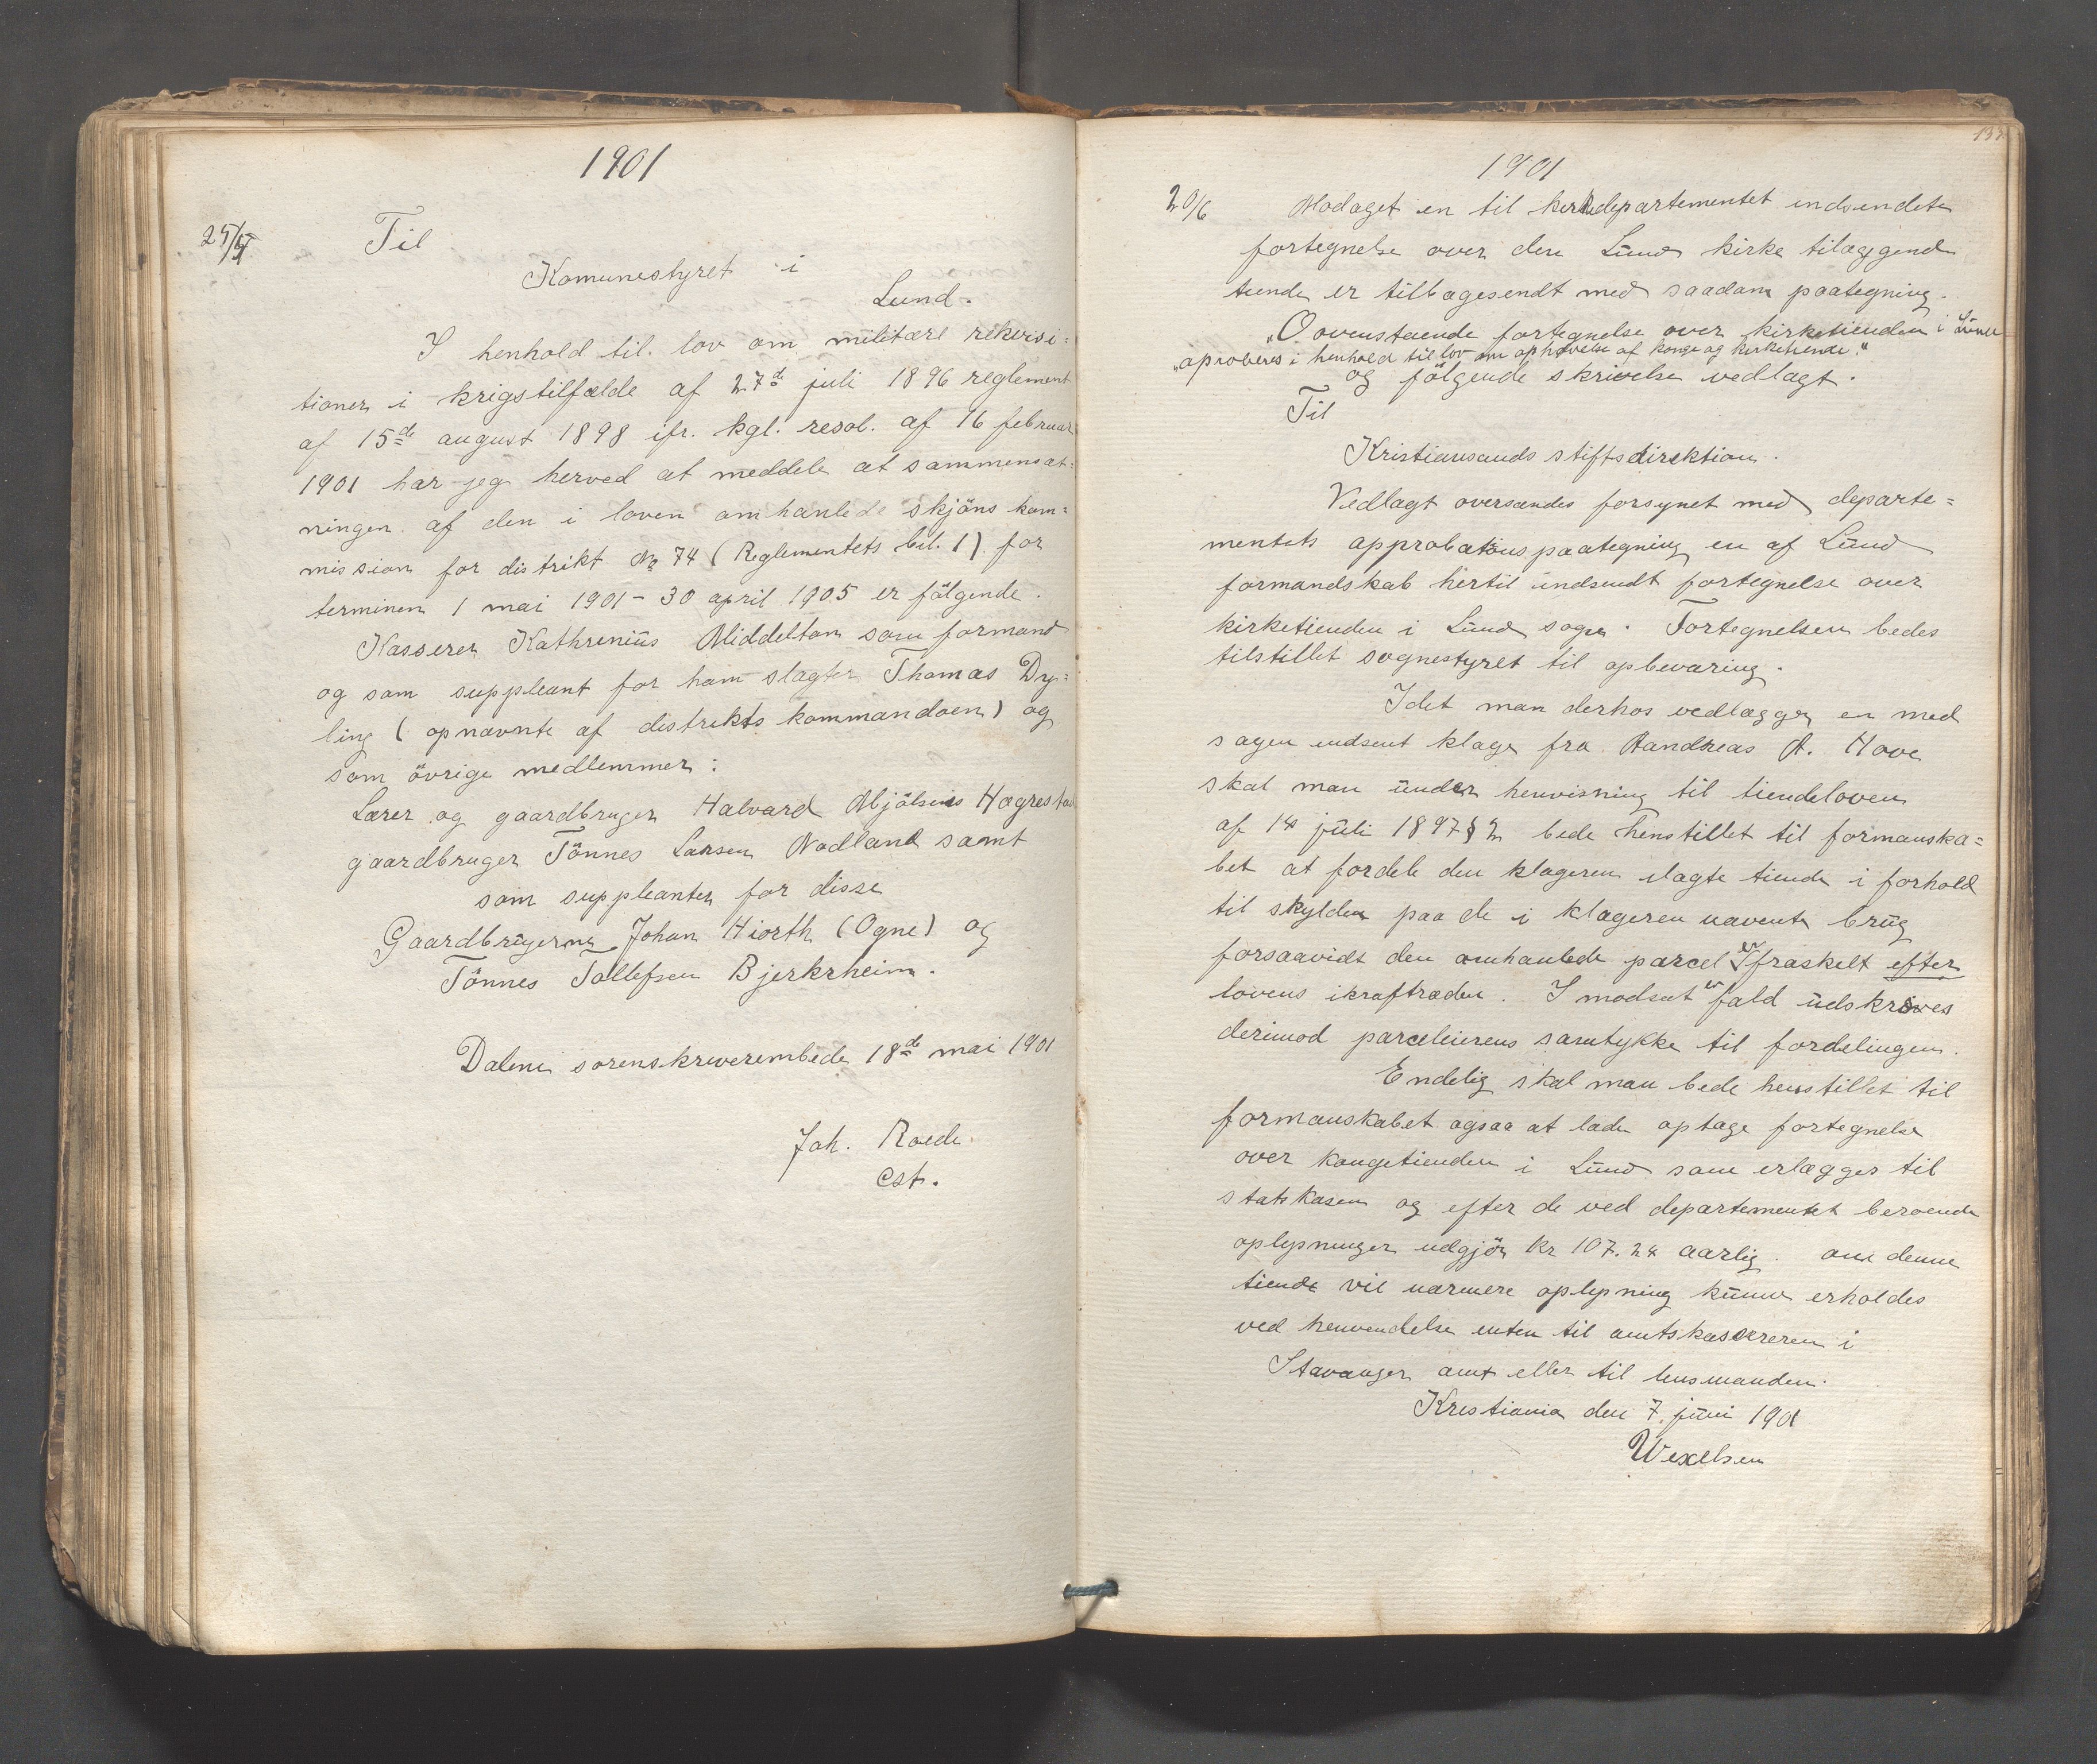 1901
25/5
Til
Komunestyret i
Lund.
I henhold til. lov om militære rekvisi=
tioner i krigstilfælde af 27de juli 1896 reglement
af 15de august 1898 ifr. kgl. resol. af 16 februar
1901 har jeg herved at meddele at sammensæt=
ningen af den i loven omhanlede skjöns kom=
mission for distrikt No 74 (Reglementets bil. 1) for
terminen 1 mai 1901 - 30 april 1905 er fölgende.
Kasserer Kathrenius Middelton som formand
og som suppleant for ham slagter Thomas Dy=
ling (opnævnte af distrikts kommandoen) og
som övrige medlemmer:
Lærer og gaardbruger Halvard Mjölsnes Hægrestad
gaardbruger Tönnes Larsen Nodland samt
som suppleanter for disse
Gaardbrugerne Johan Hiorth (Ogne) og
Tönnes Tollefsen Bjerkrheim.
Dalene sorenskriverembede 18de mai 1901
Joh. Roede
cst.
133
1901
20/6
Modaget en til kirkedepartementet indsendete
fortegnelse over den Lund kirke tilæggend
tiende er tilbagesendt med saadan paategning.
„Oovenstaende fortegnelse over kirketienden i Lund
„aproberes i henhold til lov om ophævelse af konge og kirketiende."
og fölgende skrivelse vedlagt.
Til
Kristiansands stiftsdirektion.
Vedlagt oversendes forsynet med departe=
mentets approbations paategning en af Lund
formandskab hertil indsendt fortegnelse over
kirketienden i Lund sogn. Fortegnelsen bedes
tilstillet sognestyret til opbevaring.
Idet man derhos vedlægger en med
sagen indsent klage fra Aandreas A. Hove
skal man under henvisning til tiendeloven
af 14 juli 1897 § 2 bede henstillet til formanska=
bet at fordele den klageren ilagte tiende i forhold
til skylden paa de i klageren nævente brug
forsaavidt den omhanlede parcel er fraskelt efter
lovens ikraftræden. I modsat fald udskræves
derimod parceleierens samtykke til fordelingen.
Endelig skal man bede henstillet til
formanskabet ogsaa at lade optage fortegnelse
over kongetienden i Lund som erlægges til
statskasen og efter de ved departementet beroende
oplysninger udgjör kr 107.24 aarlig. om denne
tiende vil nærmere oplysning kunne erholdes
ved henvendelse enten til amtskassereren i
Stavanger amt eller til lensmanden.
Krestiania den 7. juni 1901
Wexelsen